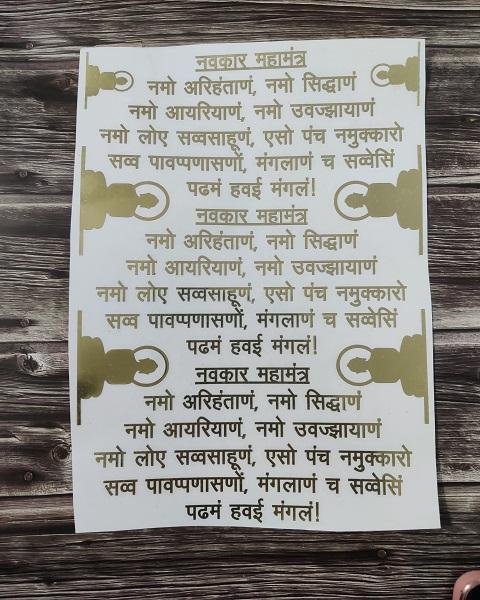 नवकार महामंत्र
नमो अरिहंताणं, नमो सिद्धाणं
नमो आयरियाणं, नमो उवज्झायाणं
नमो लोए सव्वसाहूणं, एसो पंच नमुक्कारो
सव्व पावप्पणासणों, मंगलाणं च सव्वेसिं
पढमं हवई मंगलं!
नवकार महामंत्र
नमो अरिहंताणं, नमो सिद्धाणं
नमो आयरियाणं, नमो उवज्झायाणं
नमो लोए सव्वसाहूणं, एसो पंच नमुक्कारो
सव्व पावप्पणासणों, मंगलाणं च सव्वेसिं
पढमं हवई मंगलं!
नवकार महामंत्र
नमो अरिहंताणं, नमो सिद्धाणं
नमो आयरियाणं, नमो उवज्झायाणं
नमो लोए सव्वसाहूणं, एसो पंच नमुक्कारो
सव्व पावप्पणासणों, मंगलाणं च सव्वेसिं
पढमं हवई मंगलं!